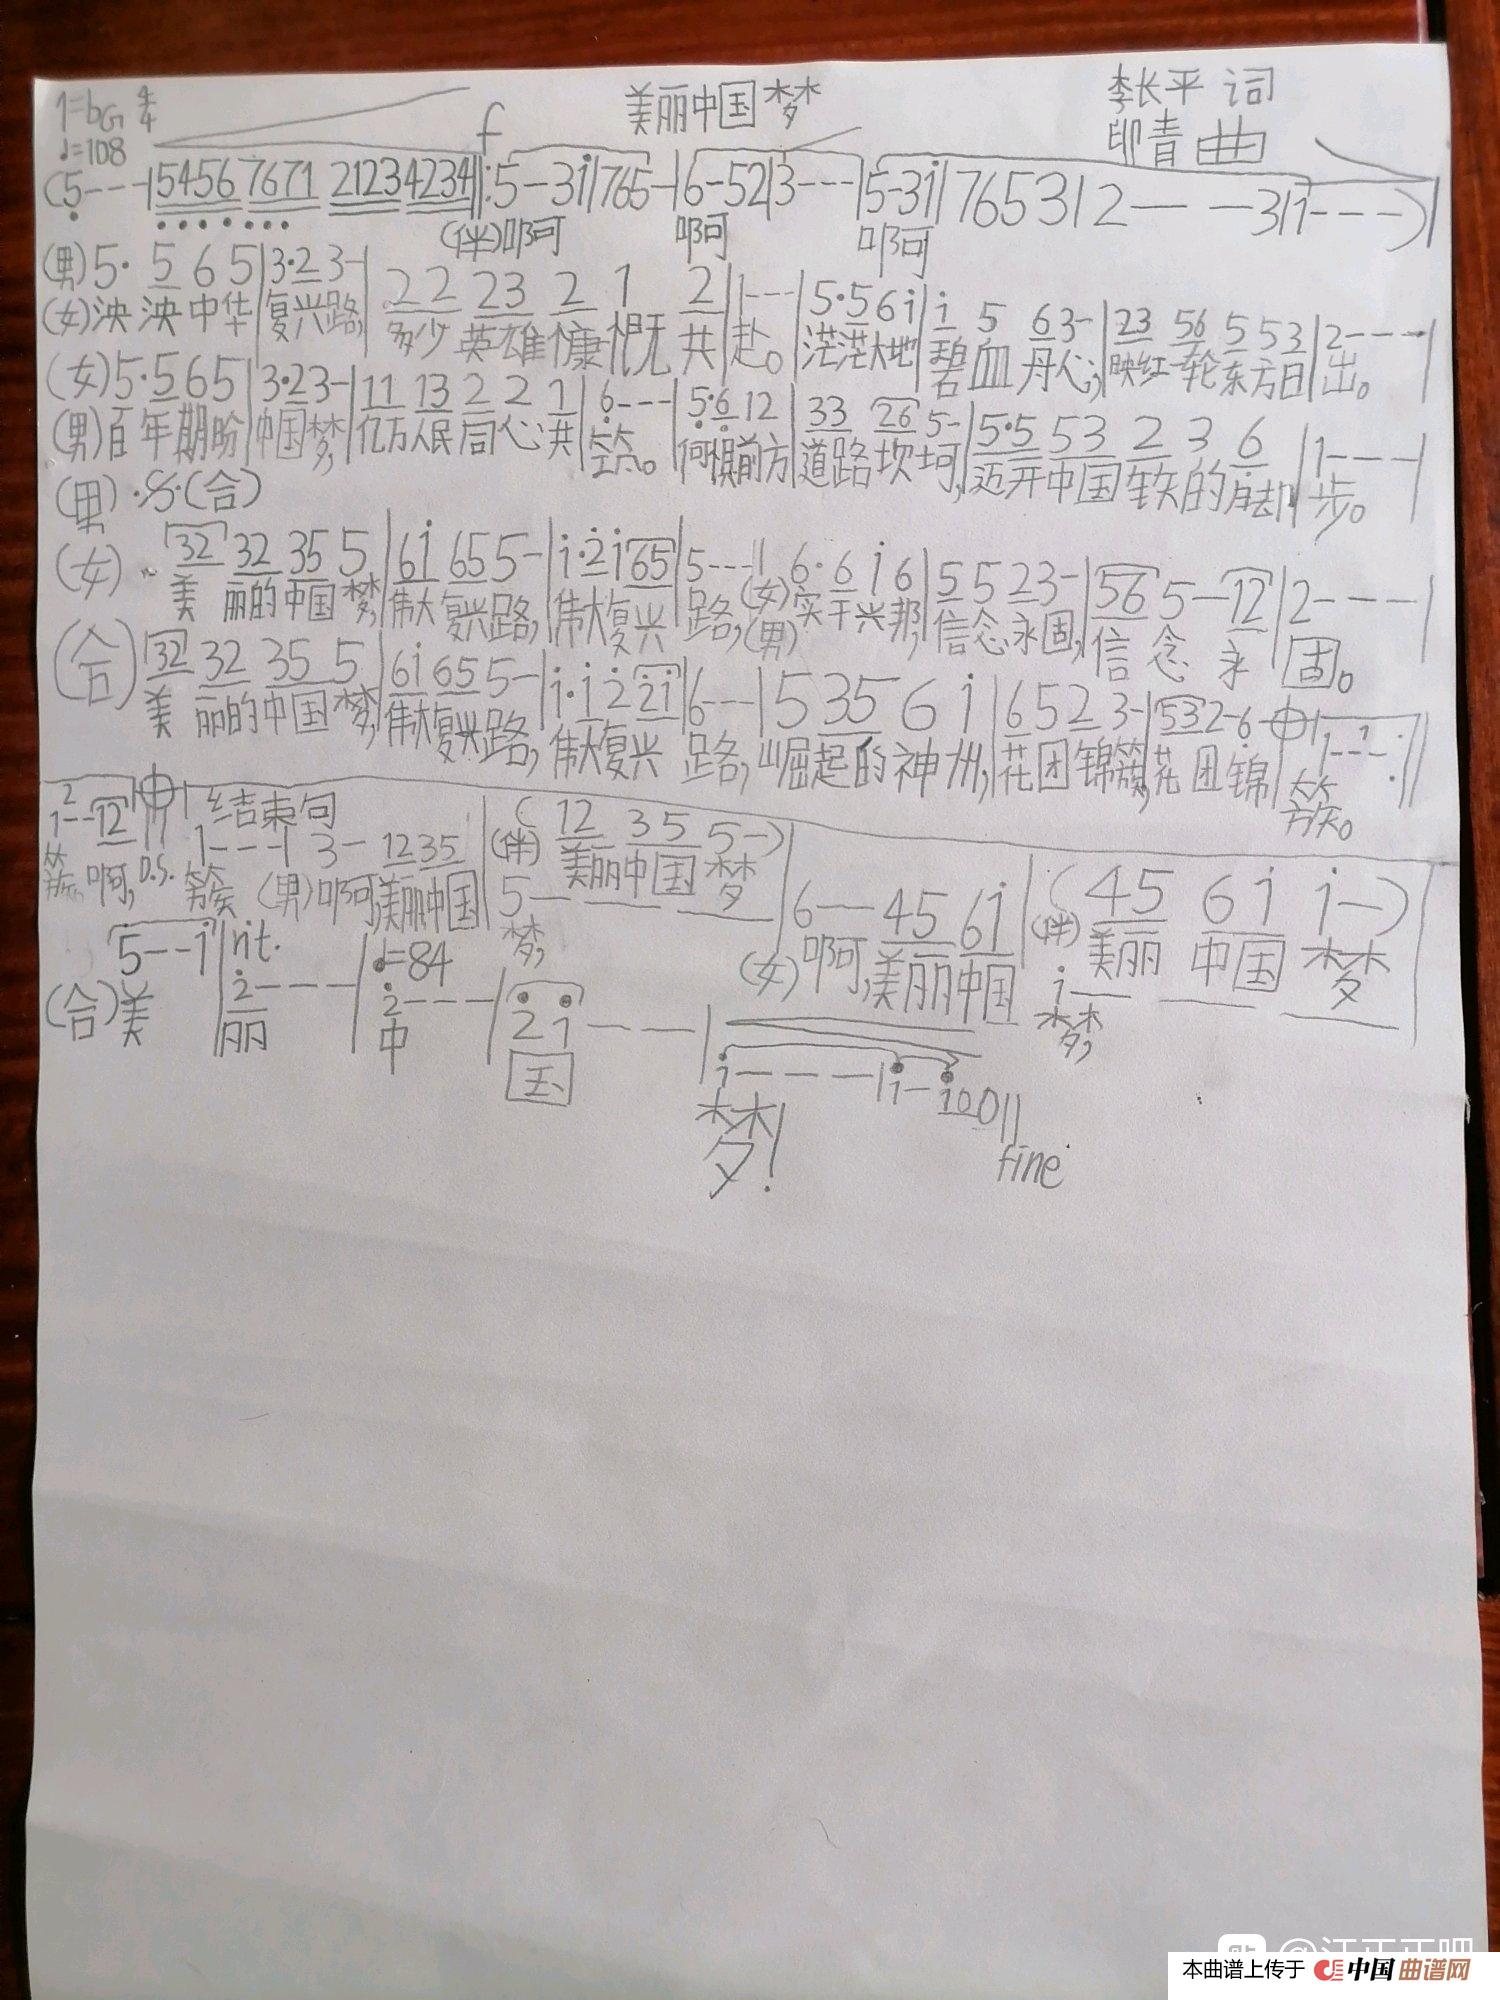 1=bG 4/4 美丽中国梦 李长平 词
♩=108 f 印青 曲
(5---|5456 7671 2123 4234‖:5-31|765-|6-52|3---|5-31|76531|2---3|1---)|
(伴)啊 啊 啊
(男)5· 5 6 5|3·2 3-|22 23 2 1 2|1---|5·5 6 i|i 5 6 3-|23 56 5 53|2---|
(女)泱泱中华|复兴路,|多少英雄慷慨共|赴。|茫茫大地|碧血丹心,|映红一轮东方日|出。
(女)5·5 6 5|3·2 3-|11 13 2 2 1|6---|5·6 12|33 26 5-|5·5 53 2 3 6|1---|
(男)百年期盼|中国梦,|亿万人民同心共|筑。|何惧前方|道路坎坷,|迈开中国铁的脚|步。
(男)·𝄋·(合)
(女) 32 32 35 5|6i 65 5-|i·2i65|5---|6·6 i 6|5 5 2 3-|56 5-12|2---|
美丽的中国梦,|伟大复兴路,|伟大复兴|路,(女)实干兴邦,|信念永固,|信念永|固。
(男)
(合)32 32 35 5|6i 65 5-|i·i 2 2i|6---|5 35 6 i|6 5 2 3-|53 2-6|1---:‖
美丽的中国梦,|伟大复兴路,|伟大复兴|路,|崛起的神州,|花团锦簇,|花团锦|簇。
2 结束句
1--12‖1---|3-1235|(12 35 5-)
簇。啊,D.S. 簇 (男)啊,美丽中国 (伴)美丽中国梦
5--- 6--45 6i|(45 6i i-)
梦, (女)啊,美丽中国 (伴)美丽 中国 梦
i---
梦,
5--i|rit. 2---|♩=84 2---|21---|i---|i-i00‖
(合)美|丽|中|国|梦!
fine
@江正正吧
本曲谱上传于 中国曲谱网